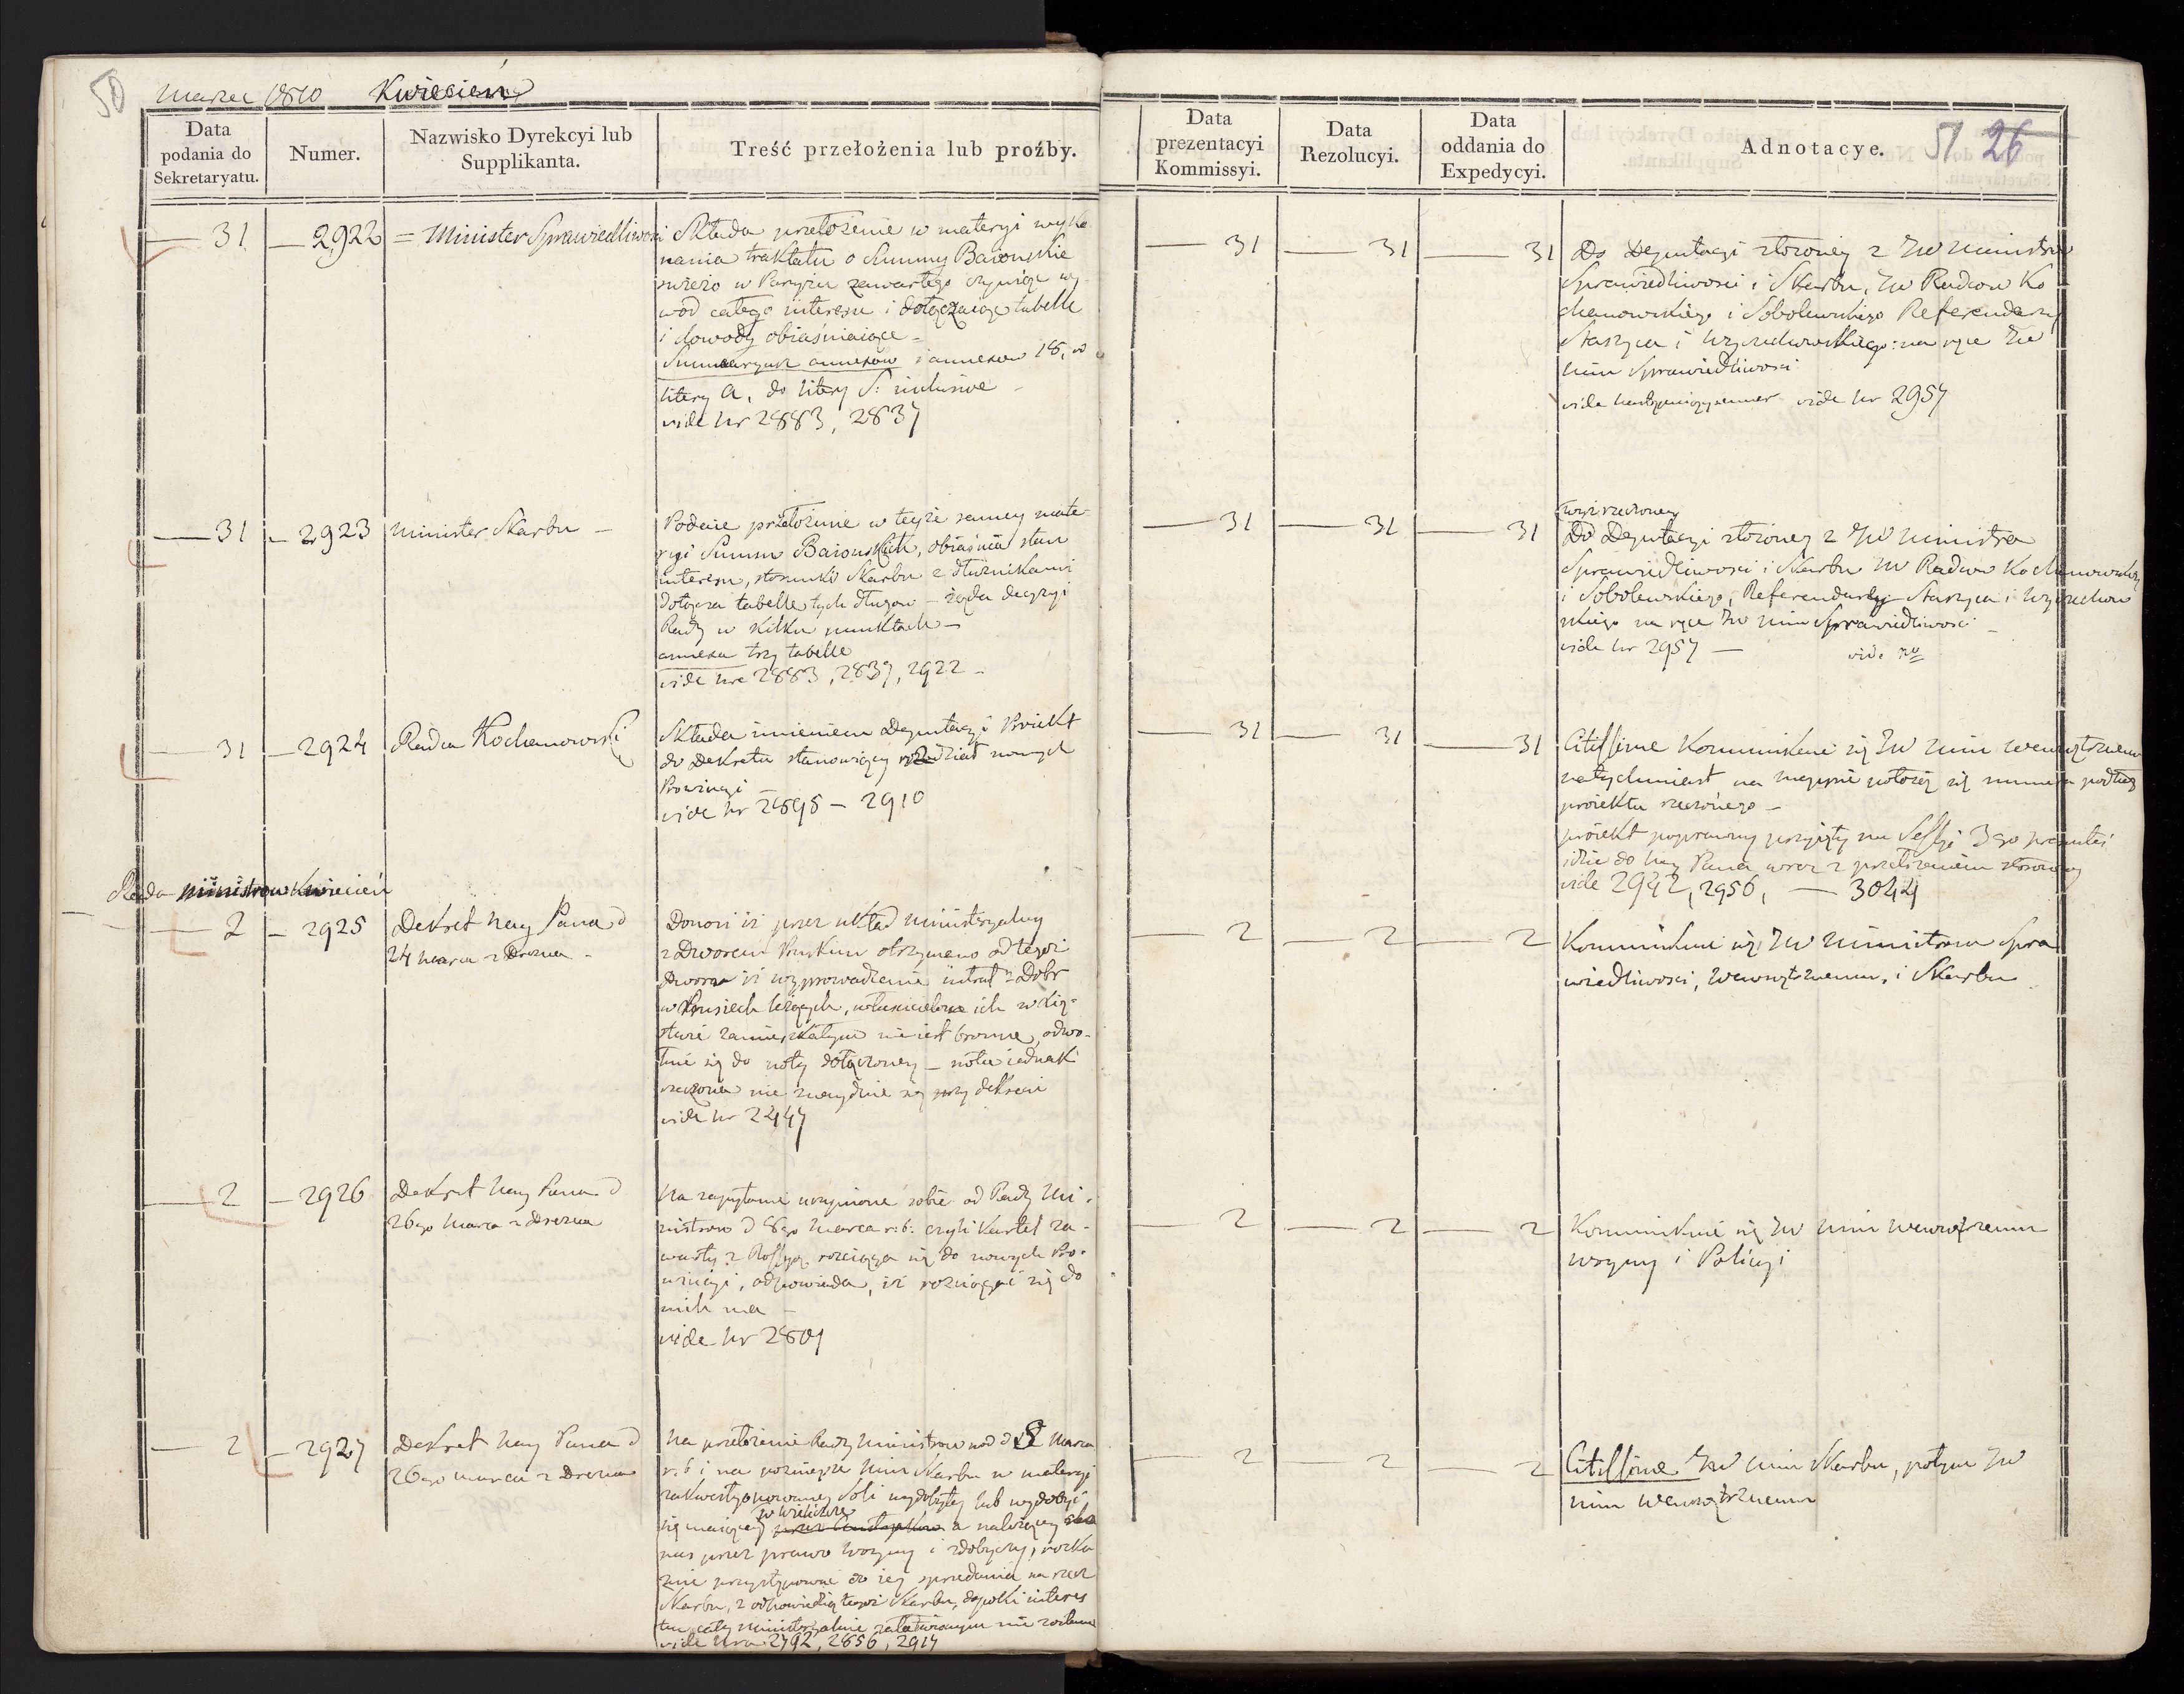 50 Marzec 1810 Kwiecień
Data podania do Sekretaryatu.
Numer.
Nazwisko Dyrekcyi lub Supplikanta.
Treść przełożenia lub proźby.
Data prezentacyi Kommissyi.
Data Rezolucyi.
Data oddania do Expedycyi.
Adnotacye.
51 26
31 — 2922 = Minister Sprawiedliwości
Składa przełożenie w materyi wyko
nania traktatu o Summy Baiońskie
świeżo w Paryżu zawartego czyniąc wy
wod całego interesu i dołączaiąc tabelle
i dowody obiaśniaiące –
Summaryusz annexow i annexow 18, od
litery A, do litery S: inclusive –
vide Nr 2883, 2837
— 31 — 31 — 31
Do Deputacyi złożoney z JW Ministra
Sprawiedliwości i Skarbu, JW Radców Ko
chanowskiego i Sobolewskiego Referendarzy
Staszyca i Wyczechowskiego: na ręce JW
Min Sprawiedliwości
vide następuiący numer vide Nr 2957
— 31 — 2923 Minister Skarbu —
Podaie przełożenie w teyże samey mate-
ryi Summ Baiońskich, obiaśnia stan
interesu, stosunki Skarbu z dłużnikami
dołącza tabelle tych długow – żąda decyzyi
Rady w kilku punktach –
annexa trzy tabelle
vide Nra 2883, 2837, 2922 –
— 31 — 31 — 31
wyżrzeczoney
Do Deputacyi złożoney z JW Ministra
Sprawiedliwości i Skarbu JW Radców Kochanowskiego
i Sobolewskiego, Referendarzy Staszyca i Wyczechow
skiego na ręce JW Min Sprawiedliwości –
vide Nr 2957 — vide
— 31 — 2924 Radca Kochanowski
Składa imieniem Deputacyi Proiekt
do Dekretu stanowiący rozdział nowych
Prowincyi –
vide Nr 2898 – 2910
— 31 — 31 — 31
Citissime Kommunikuie się JW Min Wewnętrznemu
natychmiast na
proiektu rzeczonego –
proiekt poprawny przyięty na Sessyi 3go
idzie do Nay Pana wraz z przełożeniem stosownym
vide 2942, 2956, — 3044
Rada Ministrow Kwiecień
— 2 — 2925 Dekret Nay Pana d
24 Marca z Drezna –
Donosi iż przez układ ministeryalny
z Dworem Pruskim otrzymano od tegoż
Dworu iż wyprowadzenie intrat z Dobr
w Prusiech leżących, właścicielom ich w Xię-
stwie zamieszkałym nie iest bronne, odwo-
łuie się do noty dołączoney – nota iednak
rzeczona nie znayduie się przy dekrecie
vide Nr 2447
— 2 — 2 — 2
Kommunikuie się JW Ministrom Spra
wiedliwości, Wewnętrznemu, i Skarbu
— 2 — 2926 Dekret Nay Pana d
26go Marca z Drezna
Na zapytanie uczynione sobie od Rady Mi-
nistrow d 8go Marca r: b: czyli Kartel za-
warty z Rossyą rozciąga się do nowych Pro-
wincyi, odpowiada, iż rozciągać się do
nich ma –
vide Nr 2801
— 2 — 2 — 2
Kommunikuie się JW Min Wewnętrznemu
Woyny i Policyi
— 2 — 2927 Dekret Nay Pana d
26go Marca z Drezna
Na przełożenie Rady Ministrow pod d 8 Marca
r: b i na późnieysze Min Skarbu w materyi
zakwestyonowaney Soli wydobytey lub wydobyć
w Wieliczce
się maiącey przez Austryaków a należącey dla
nas przez prawo Woyny i zdobyczy, rozka
zuie przystępować do iey sprzedania na rzecz
Skarbu, z odpowiedzią tegoż Skarbu, dopoki interes
ten cały ministeryalnie załatwionym nie zostanie
vide Nra 2792, 2856, 2917
— 2 — 2 — 2
Citissime JW Min Skarbu, potym JW
Min Wewnętrznemu